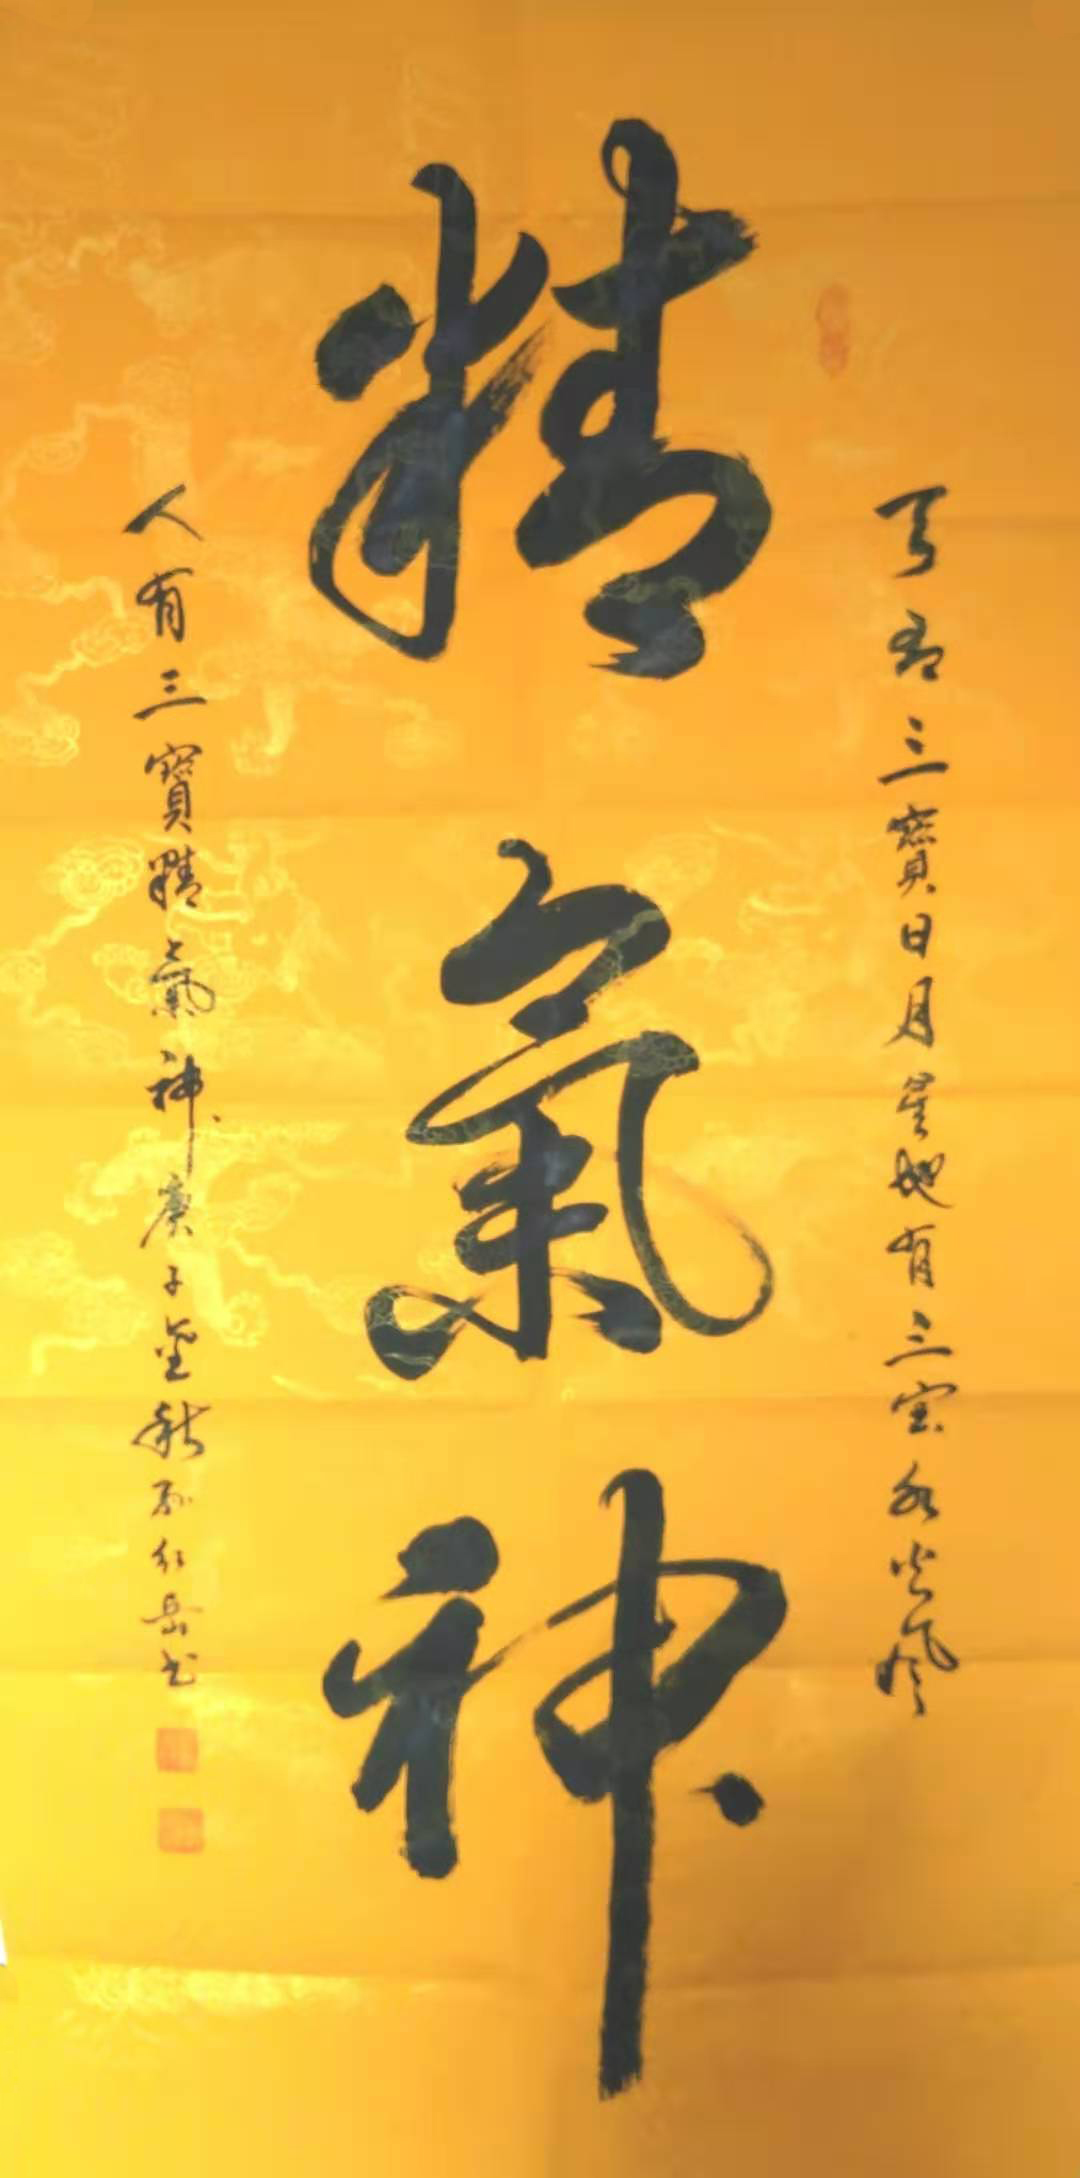 天有三寶日月星地有三宝水火风
精氣神
人有三寶精氣神庚子金秋孙红岳书